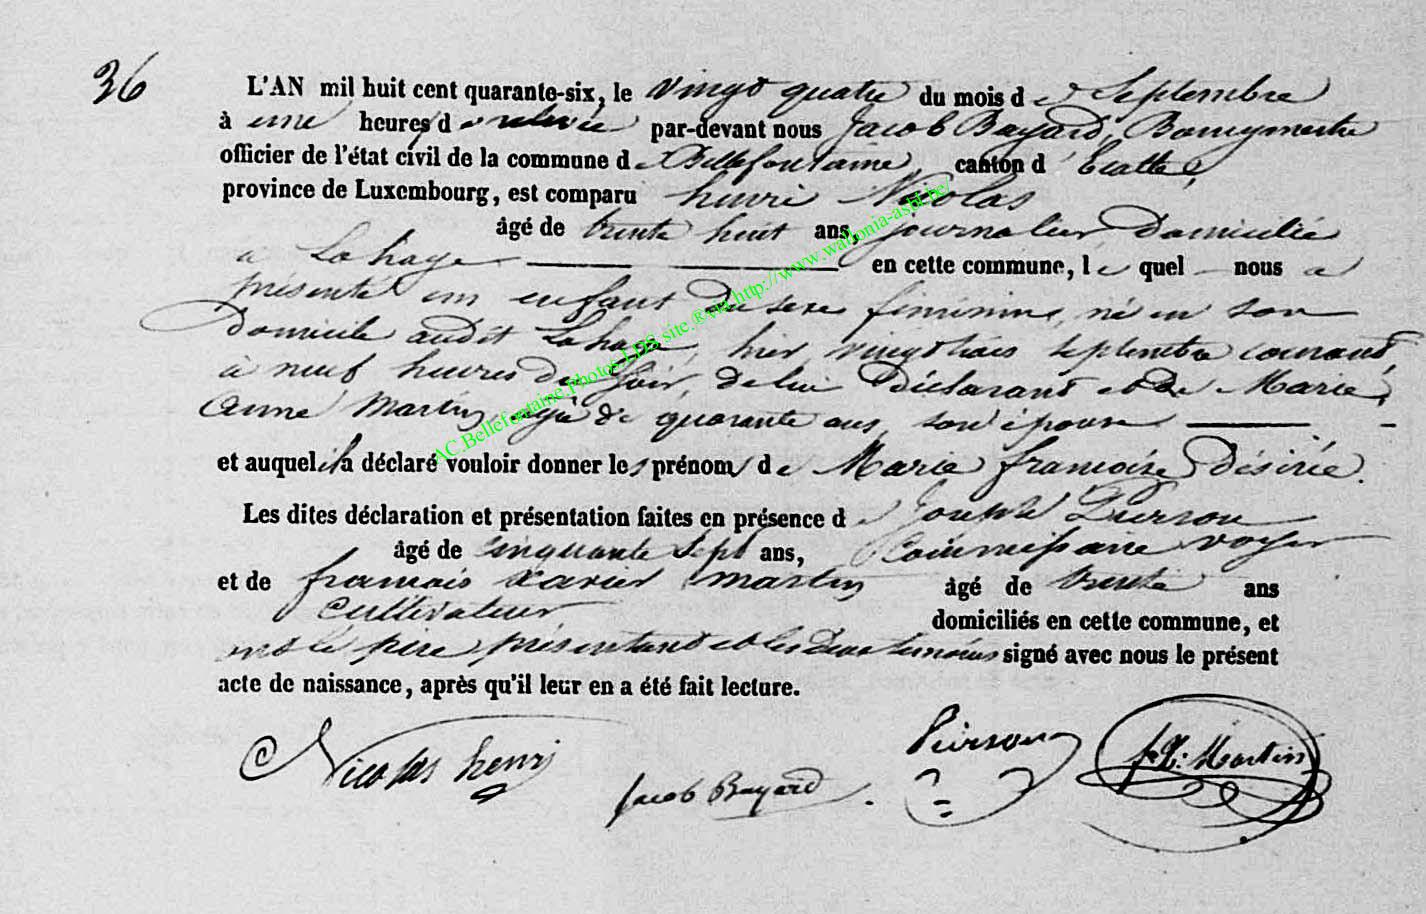 36
L'AN mil huit cent quarante-six, le vingt quatre du mois de Septembre
à une heures de relevée par-devant nous Jacob Bayard, Bourgmestre
officier de l'état civil de la commune de Bellefontaine, canton d'Etalle,
province de Luxembourg, est comparu henri Nicolas
âgé de trente huit ans, journalier, domicilié
a Lahage en cette commune, le quel nous a
présenté un enfant du sexe féminin, né en son
domicile audit Lahage, hier vingt trois septembre courant,
à neuf heures du soir, de lui déclarant et de Marie
Anne Martin, agée de quarante ans, son épouse
et auquel il a déclaré vouloir donner les prénoms de Marie françoise Désirée.
Les dites déclaration et présentation faites en présence de Joseph Pierson
âgé de cinquante sept ans, Commissaire voyer
et de francois xavier martin âgé de trente ans
Cultivateur domiciliés en cette commune, et
ont le père présentant et les deux temoins signé avec nous le présent
acte de naissance, après qu'il leur en a été fait lecture.
Nicolas henri
Jacob Bayard
Pierson
f. X. Martin
AC.Bellefontaine.Photos LDS site.®via http://www.wallonia-asbl.be/